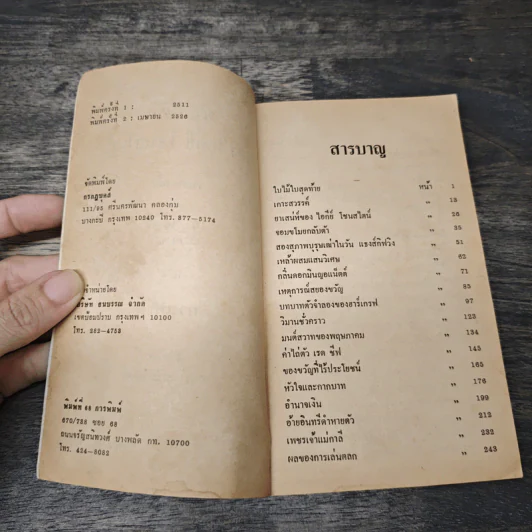 พิมพ์ครั้งที่ 1 : 2511
พิมพ์ครั้งที่ 2 : เมษายน 2526
จัดพิมพ์โดย
111/65 ศรีนครพัฒนา คลองกุ่ม
บางกะปิ กรุงเทพ 10240 โทร. 377-5174
จำหน่ายโดย
บริษัท ธนบรรณ จำกัด
เขตป้อมปราบ กรุงเทพฯ 10100
โทร. 282-4753
พิมพ์ที่ 68 การพิมพ์
670/788 ซอย 68
ถนนจรัญสนิทวงศ์ บางพลัด กท. 10700
โทร. 424-5052
สารบาญ
ใบไม้ใบสุดท้าย หน้า 1
เกาะสวรรค์ " 13
ยาเสน่ห์ของ ไอกีย์ โชนสไตน์ " 26
จอมขโมยกลับตัว " 35
สองสุภาพบุรุษเฒ่าในวัน แธงส์กิฟวิง " 51
เหล้าผสมแสนวิเศษ " 62
กลิ่นดอกมินญอแน็ตต์ " 71
เหตุการณ์สยองขวัญ " 85
บทบาทตัวจำลองของฮาร์เกรฟ " 97
วิมานชั่วคราว " 123
มนต์สวาทของพฤษภาคม " 134
ค่าไถ่ตัว เรด ชีฟ " 145
ของขวัญที่ไร้ประโยชน์ " 165
หัวใจและกากบาท " 176
อำนาจเงิน " 199
อ้ายอินทรีดำหายตัว " 212
เพชรเจ้าแม่กาลี " 232
ผลของการเล่นตลก " 243